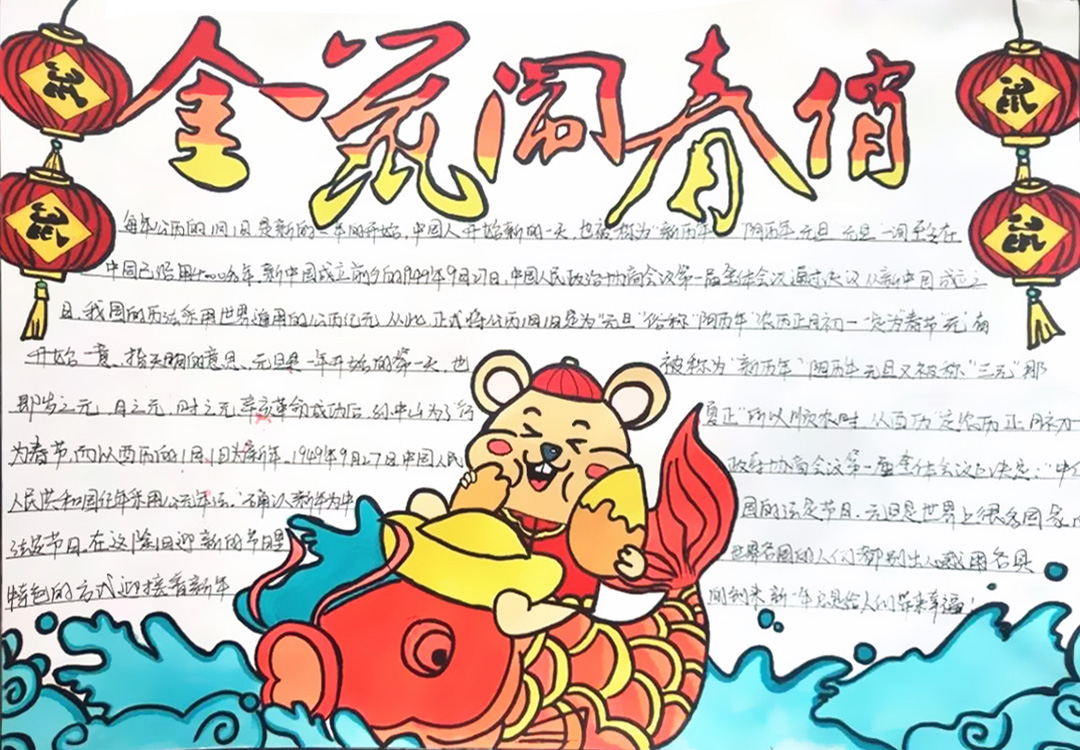 金鼠闹春俏
鼠
鼠
鼠
鼠
每年公历的1月1日是新的一年的开始,中国人开始新的一天,也被称为"新历年" 阴历年 元旦 元旦一词
中国已沿用4000多年,新中国成立前夕的1949年9月27日,中国人民政治协商会议第一届全体会议通过决议 从新中国成立之
日,我国的历法采用世界通用的公历纪元 从此,正式将公历1月1日定为"元旦"俗称"阳历年"农历正月初一定为春节"元"有
开始一意、指天明的意思、元旦是一年开始的第一天,也
被称为"新历年"阳历年元旦又被称"三元"那
即岁之元 月之元,时之元 辛亥革命成功后,孙中山为了"行
夏正"所以顺农时,从西历"定农历正月初一
为春节,而以西历的1月1日为新年。1949年9月27日,中国人民
政府协商会议第一届全体会议上决定:"中
人民共和国纪年采用公元年法。"
国的法定节日,元旦是世界上很多国家
法定节日,在这除旧迎新的节日里
世界各国的人们都别出心裁用各具
特色的方式迎接着新年
新一年 给人们带来幸福!